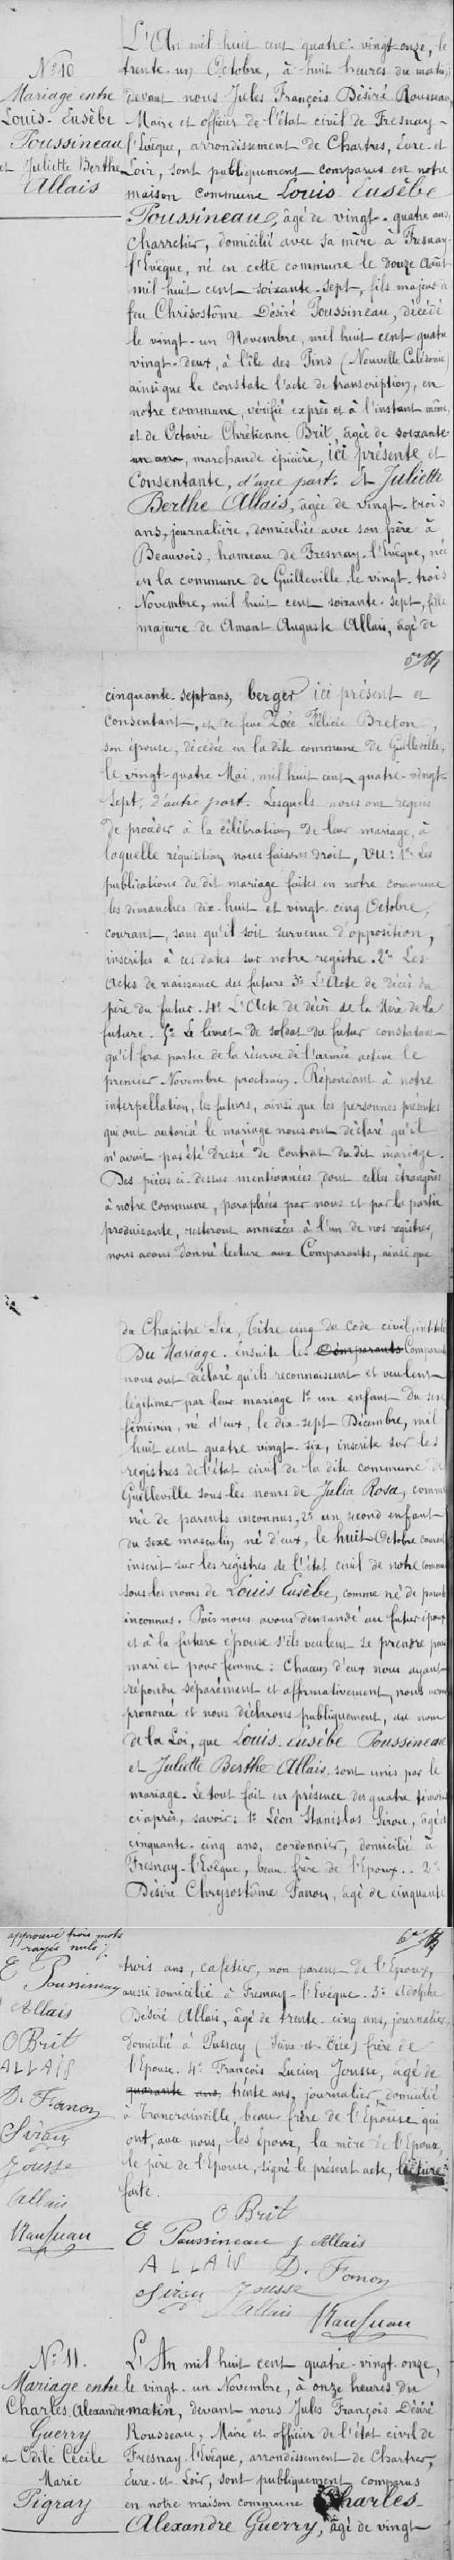 N° 10
Mariage entre
Louis-Eusèbe
Poussineau
et Juliette Berthe
Allais
L'An mil huit cent quatre-vingt-onze, le
trente-un Octobre, à huit heures du matin,
devant nous Jules François Désiré Rousseau,
Maire et officier de l'état civil de Fresnay-
l'Evêque, arrondissement de Chartres, Eure-et
Loir, sont publiquement comparus en notre
maison commune Louis Eusèbe
Poussineau, âgé de vingt-quatre ans,
Charretier, domicilié avec sa mère à Fresnay-
l'Evêque, né en cette commune le douze Août
mil huit cent soixante-sept, fils majeur de
feu Chrisostôme Désiré Poussineau, décédé
le vingt-un Novembre, mil huit cent quatre
vingt-deux, à l'île des Pins (Nouvelle Calédonie)
ainsi que le constate l'acte de transcription, en
notre commune, vérifié exprès et à l'instant même,
et de Octavie Chrétienne Brit, âgée de soixante-
un ans, marchande épicière, ici présente et
Consentante, d'une part. Et Juliette
Berthe Allais, âgée de vingt-trois
ans, journalière, domiciliée avec son père à
Beauvois, hameau de Fresnay-l'Evêque, née
en la commune de Guilleville, le vingt-trois
Novembre, mil huit cent soixante-sept, fille
majeure de Amant Auguste Allais, âgé de
cinquante-sept ans, berger ici présent et
Consentant, et de feue Zoée Félicie Breton,
son épouse, décédée en la dite commune de Guilleville,
le vingt-quatre Mai, mil huit cent quatre-vingt-
sept, d'autre part. Lesquels nous ont requis
de procéder à la célébration de leur mariage, à
laquelle réquisition nous faisons droit, Vu: 1° Les
publications du dit mariage faites en notre commune
les dimanches dix-huit et vingt-cinq Octobre,
courant, sans qu'il soit survenu d'opposition,
inscrites à ces dates sur notre registre. 2° Les
Actes de naissance des futurs 3° L'Acte de décès du
père du futur. 4° L'Acte de décès de la Mère de la
future. 5° Le livret de soldat du futur constatant
qu'il fera partie de la réserve de l'armée active le
premier Novembre prochain. Répondant à notre
interpellation, les futurs, ainsi que les personnes présentes
qui ont autorisé le mariage nous ont déclaré qu'il
n'avait pas été dressé de contrat du dit mariage.
Des pièces ci-dessus mentionnées, dont celles étrangères
à notre commune, paraphées par nous et par la partie
produisante, resteront annexées à l'un de nos registres,
nous avons donné lecture aux Comparants, ainsi que
du Chapitre Six, titre cinq du Code civil, intitulé
Du Mariage. ensuite les Comparants Comparants
nous ont déclaré qu'ils reconnaissent et veulent
légitimer par leur mariage 1° un enfant du sexe
féminin, né d'eux, le dix-sept Décembre, mil
huit cent quatre vingt-six, inscrite sur les
registres de l'état civil de la dite commune de
Guilleville sous les noms de Julia Rosa, comme
née de parents inconnus, 2° un second enfant
du sexe masculin né d'eux, le huit Octobre courant
inscrit sur les registres de l'état civil de notre commune
sous les noms de Louis Eusèbe, comme né de parents
inconnus. Puis nous avons demandé au futur époux
et à la future épouse s'ils veulent se prendre pour
mari et pour femme: Chacun d'eux nous ayant
répondu séparément et affirmativement, nous avons
prononcé et nous déclarons publiquement, au nom
de la Loi, que Louis-Eusèbe Poussineau
et Juliette Berthe Allais, sont unis par le
mariage. Le tout fait en présence des quatre témoins
ci après, savoir: 1° Léon Stanislas Sirou, âgé de
cinquante-cinq ans, cordonnier, domicilié à
Fresnay-l'Evêque, beau-frère de l'Epoux. 2°
Désiré Chrysostôme Fanon, âgé de cinquante
approuvé trois mots
rayés nuls
E Poussineau
Allais
O Brit
ALLAIS
D. Fanon
Sirou
Jousse
Allais
trois ans, cafetier, non parent de l'Epoux,
aussi domicilié à Fresnay-l'Evêque. 3° Adolphe
Désiré Allais, âgé de trente-cinq ans, journalier,
domicilié à Pussay (Seine-et-Oise) frère de
l'Epouse. 4° François Lucien Jousse, âgé de
quarante ans, trente ans, journalier, domicilié
à Trancrainville, beau-frère de l'Epouse qui
ont, avec nous, les époux, la mère de l'Epoux,
le père de l'Epouse, signé le présent acte, lecture
faite.
O Brit
E Poussineau J Allais
ALLAIS D. Fanon
Sirou Jousse
Allais
N° 11.
Mariage entre
Charles, Alexandre
Guerry
et Odile Cécile
Marie
Pigray
L'An mil huit cent quatre-vingt-onze,
le vingt-un Novembre, à onze heures du
matin, devant nous Jules François Désiré
Rousseau, Maire et officier de l'état civil de
Fresnay-l'Evêque, arrondissement de Chartres,
Eure-et Loir, sont publiquement comparus
en notre maison commune Charles-
Alexandre Guerry, âgé de vingt-